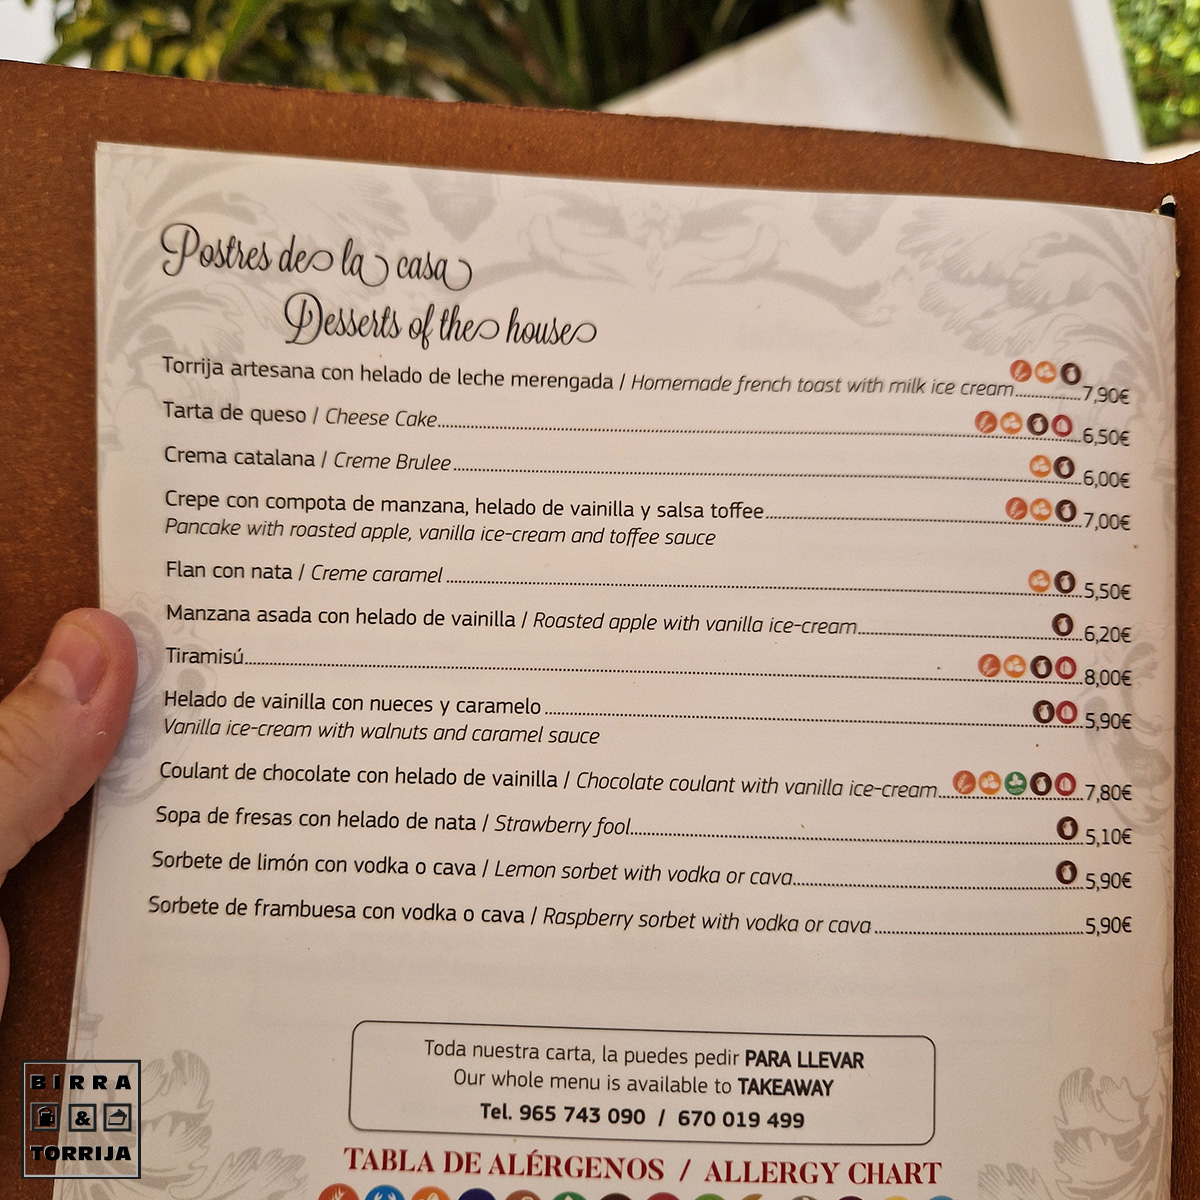 Postres de la casa
Desserts of the house
Torrija artesana con helado de leche merengada / Homemade french toast with milk ice cream 7,90€
Tarta de queso / Cheese Cake 6,50€
Crema catalana / Creme Brulee 6,00€
Crepe con compota de manzana, helado de vainilla y salsa toffee 7,00€
Pancake with roasted apple, vanilla ice-cream and toffee sauce
Flan con nata / Creme caramel 5,50€
Manzana asada con helado de vainilla / Roasted apple with vanilla ice-cream 6,20€
Tiramisú 8,00€
Helado de vainilla con nueces y caramelo 5,90€
Vanilla ice-cream with walnuts and caramel sauce
Coulant de chocolate con helado de vainilla / Chocolate coulant with vanilla ice-cream 7,80€
Sopa de fresas con helado de nata / Strawberry fool 5,10€
Sorbete de limón con vodka o cava / Lemon sorbet with vodka or cava 5,90€
Sorbete de frambuesa con vodka o cava / Raspberry sorbet with vodka or cava 5,90€
Toda nuestra carta, la puedes pedir PARA LLEVAR
Our whole menu is available to TAKEAWAY
Tel. 965 743 090 / 670 019 499
TABLA DE ALÉRGENOS / ALLERGY CHART
BIRRA
&
TORRIJA